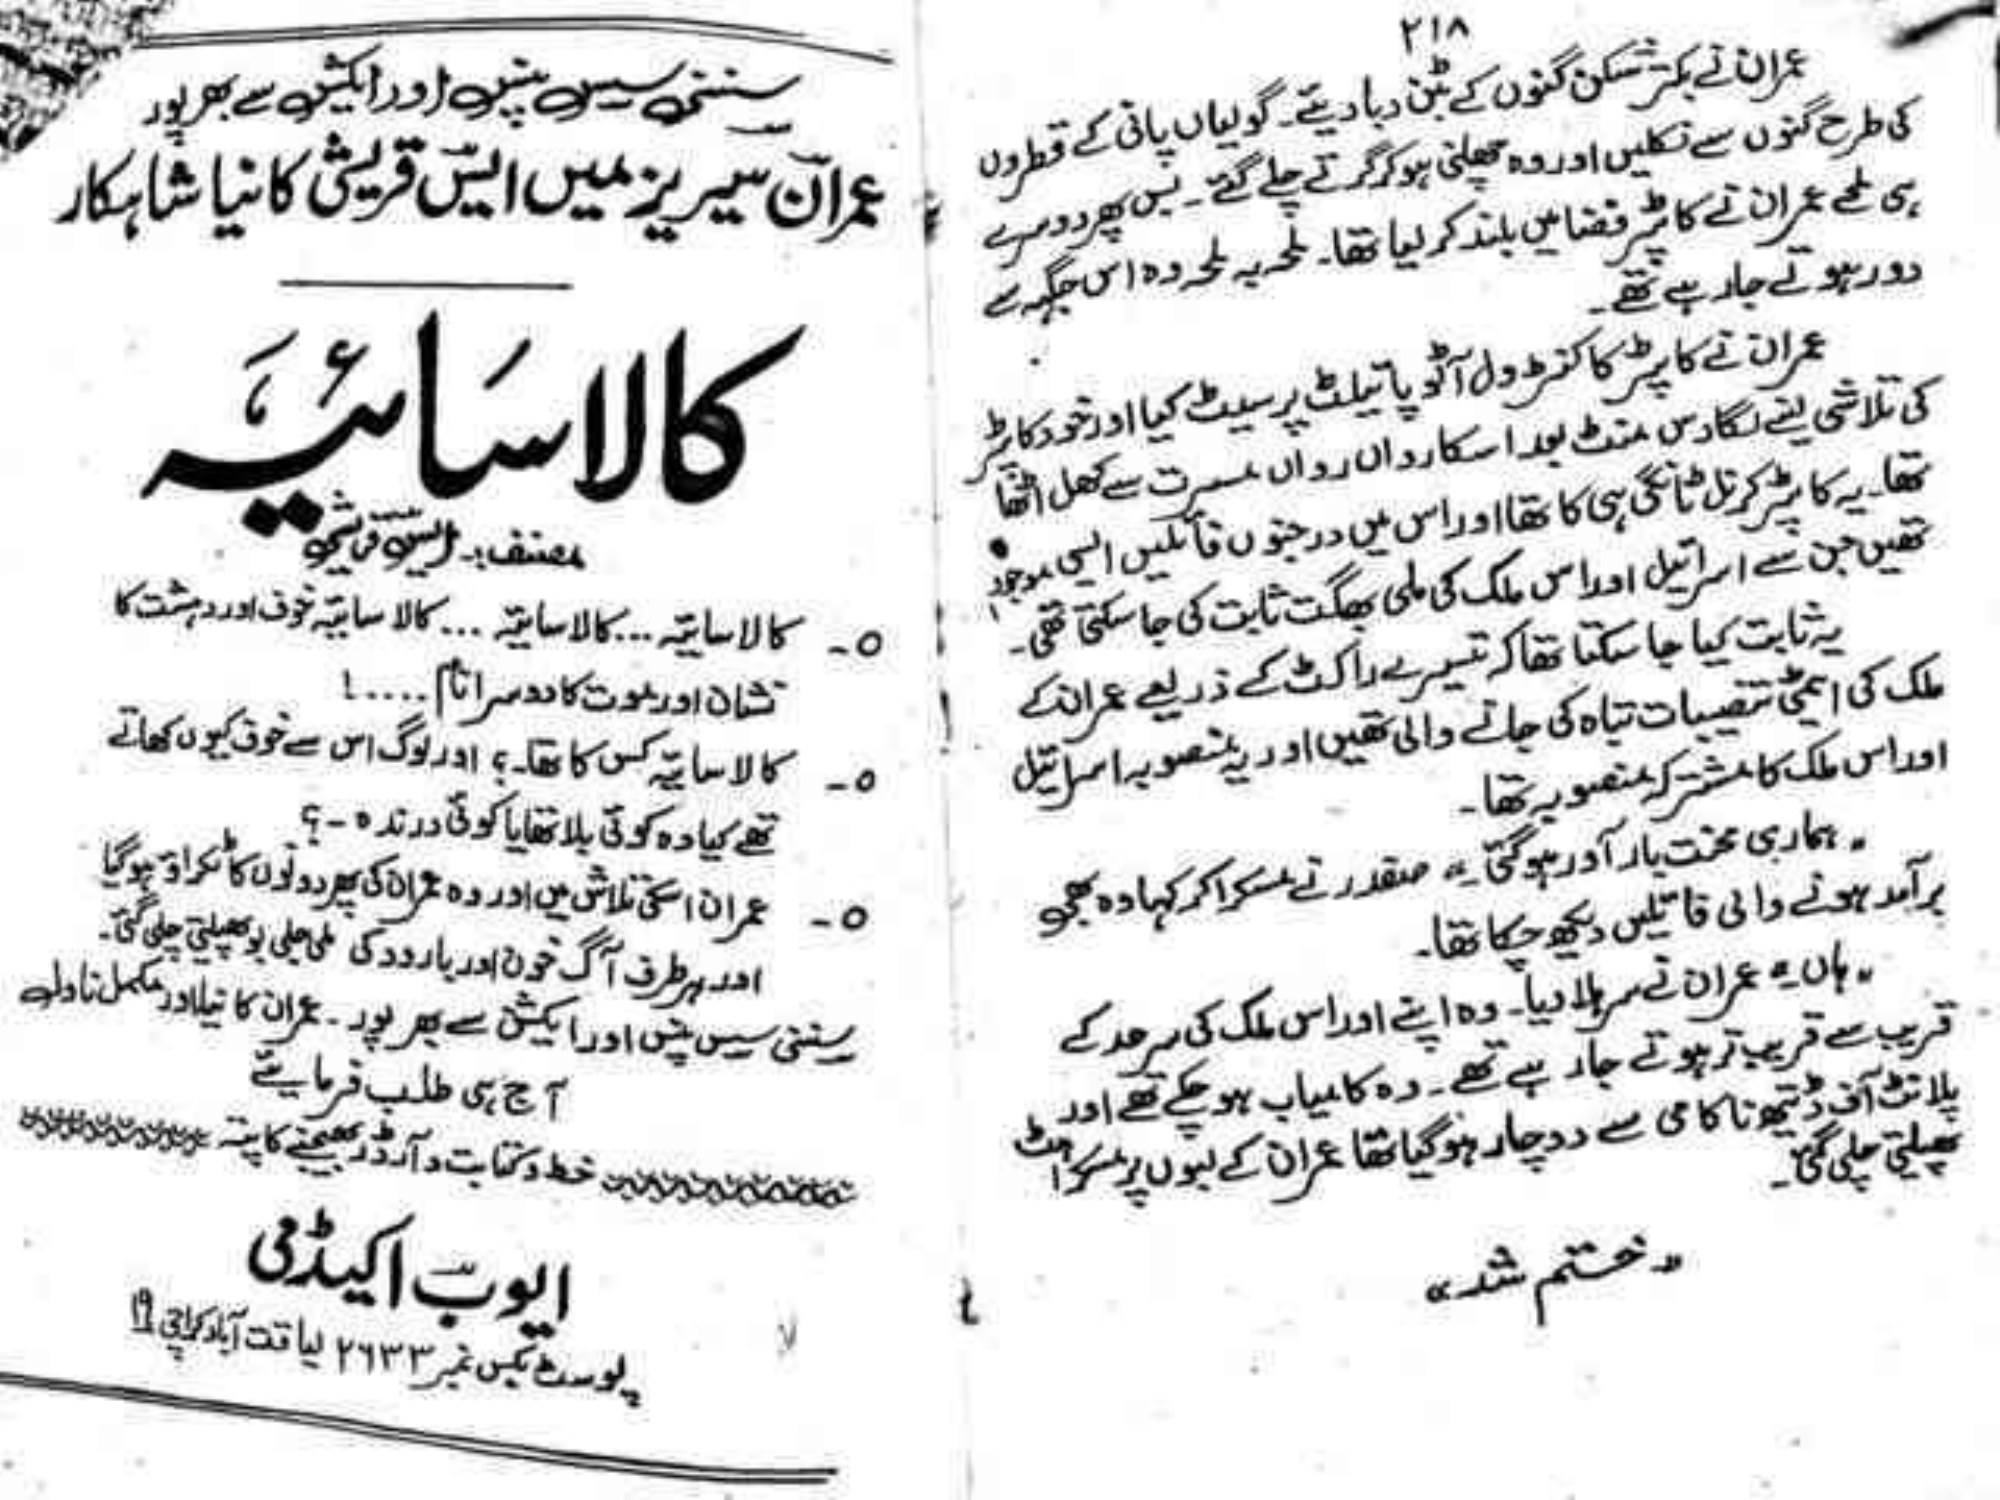 ۲۱۸
عمران نے بکتر شکن گنوں کے بٹن دبا دیئے۔ گولیاں پانی کے قطروں
کی طرح گنوں سے نکلیں اور وہ چھلنی ہو کر گرتے چلے گئے۔ بس پھر دوسرے
ہی لمحے عمران نے کاپٹر فضا میں بلند کر لیا تھا۔ لمحہ بہ لمحہ وہ اس جگہ سے
دور ہوتے جا رہے تھے۔
عمران نے کاپٹر کا کنٹرول آٹو پائیلٹ پر سیٹ کیا اور خود کاپٹر
کی تلاشی لینے لگا دس منٹ بعد اسکا رواں رواں مسرت سے کھل اٹھا
تھا۔ یہ کاپٹر کرنل ٹانگی ہی کا تھا اور اس میں درجنوں فائلیں ایسی موجود
تھیں جن سے اسرائیل اور اس ملک کی ملی بھگت ثابت کی جا سکتی تھی۔
یہ ثابت کیا جا سکتا تھا کہ تیسرے راکٹ کے ذریعے عمران کے
ملک کی ایٹمی تنصیبات تباہ کی جانے والی تھیں اور یہ منصوبہ اسرائیل
اور اس ملک کا مشترکہ منصوبہ تھا۔
" ہماری محنت بار آور ہو گئی ہے " صفدر نے مسکرا کر کہا وہ بھی
برآمد ہونے والی فائلیں دیکھ چکا تھا۔
" ہاں " عمران نے سر ہلا دیا۔ وہ اپنے اور اس ملک کی سرحد کے
قریب سے قریب تر ہوتے جا رہے تھے۔ وہ کامیاب ہو چکے تھے اور
پلانٹ آف ڈیتھ ناکامی سے دوچار ہو گیا تھا عمران کے لبوں پر مسکراہٹ
پھیلتی چلی گئی۔
" ختم شد "
سنسنی سسپنس اور ایکشن سے بھرپور
عمران سیریز میں ایس قریشی کا نیا شاہکار
کالا سائیہ
مصنف :۔ ایس قریشی
۵۔ کالا سائیہ ... کالا سائیہ ... کالا سائیہ خوف اور دہشت کا
نشان اور موت کا دوسرا نام ....!
۵۔ کالا سائیہ کس کا تھا۔؟ اور لوگ اس سے خوف کیوں کھاتے
تھے کیا وہ کوئی بلا تھا یا کوئی درندہ ۔؟
۵۔ عمران اسکی تلاش میں اور وہ عمران کی پھر دونوں کا ٹکراؤ ہو گیا
اور ہر طرف آگ خون اور بارود کی ملی جلی بو پھیلتی چلی گئی۔
سنسنی سسپنس اور ایکشن سے بھرپور۔ عمران کا نیا اور مکمل ناول
آج ہی طلب فرمایئے
خط و کتابت و آرڈر بھیجنے کا پتہ
ایوب اکیڈمی
پوسٹ بکس نمبر ۲۶۳۳ لیاقت آباد کراچی ۱۹